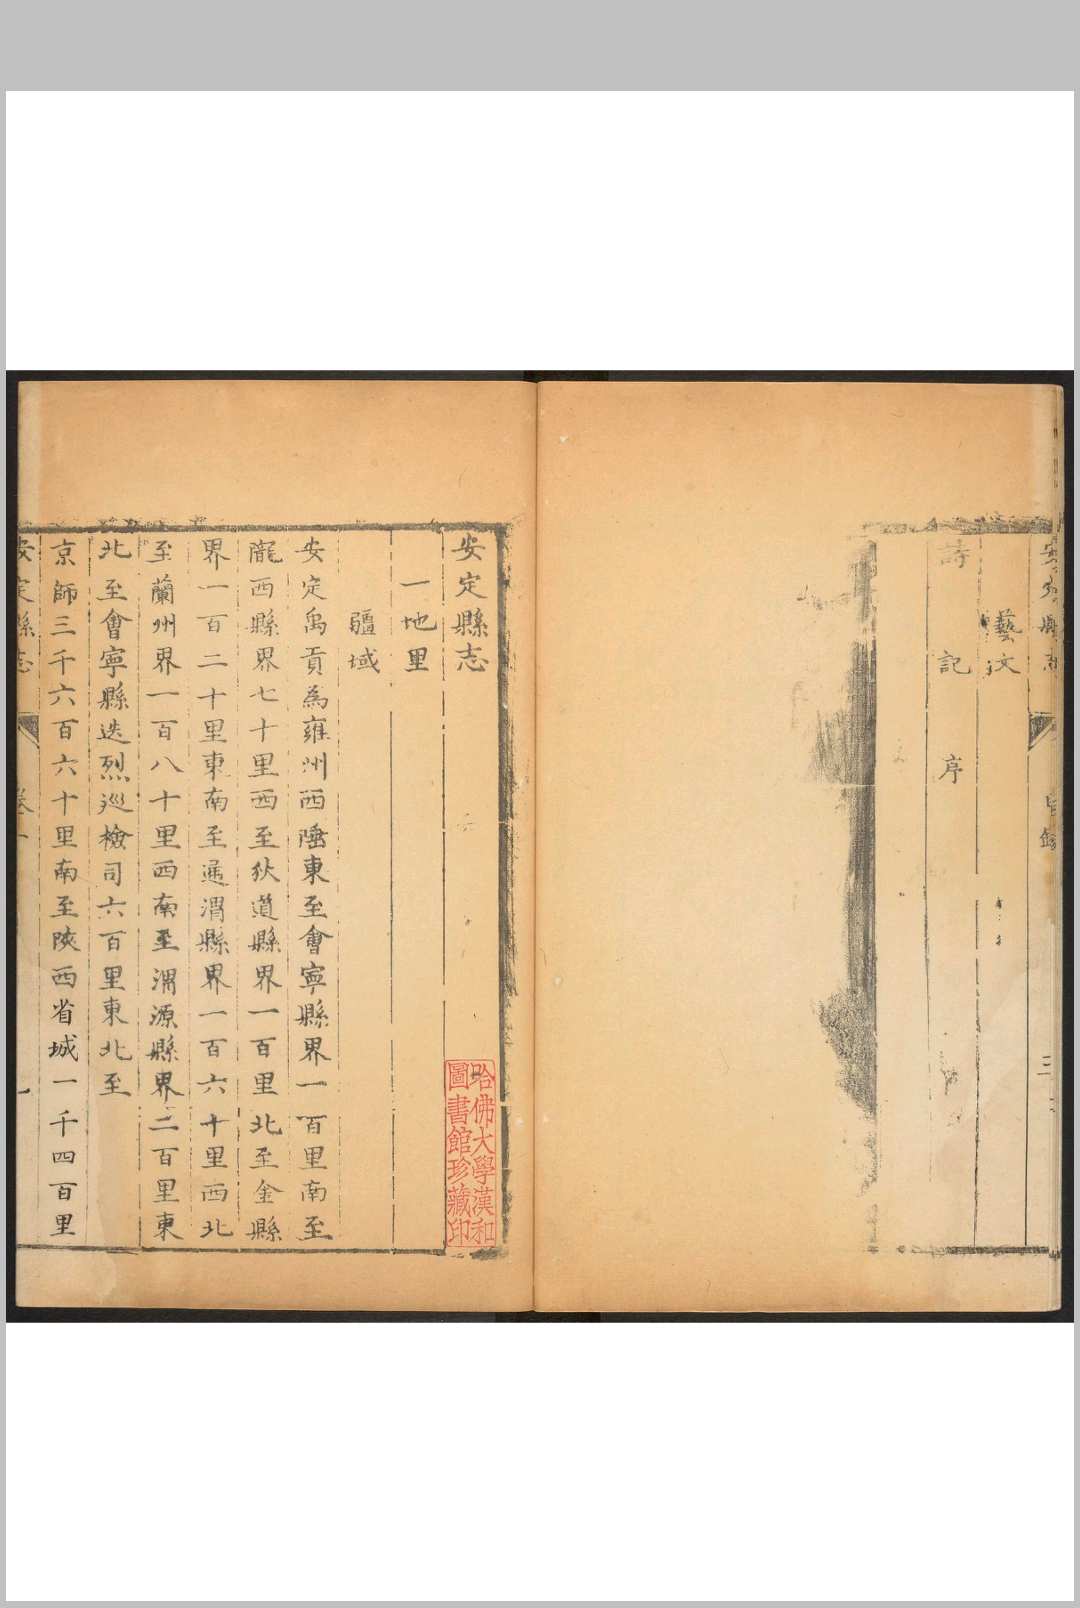 目錄
三
藝文
詩 記 序
安定縣志
一地里
疆域
安定禹貢為雍州西陲東至會寧縣界一百里南至
隴西縣界七十里西至狄道縣界一百里北至金縣
界一百二十里東南至通渭縣界一百六十里西北
至蘭州界一百八十里西南至渭源縣界二百里東
北至會寧縣迭烈巡檢司六百里東北至
京師三千六百六十里南至陝西省城一千四百里
安定縣志
卷一
哈佛大學漢和
圖書館珍藏印